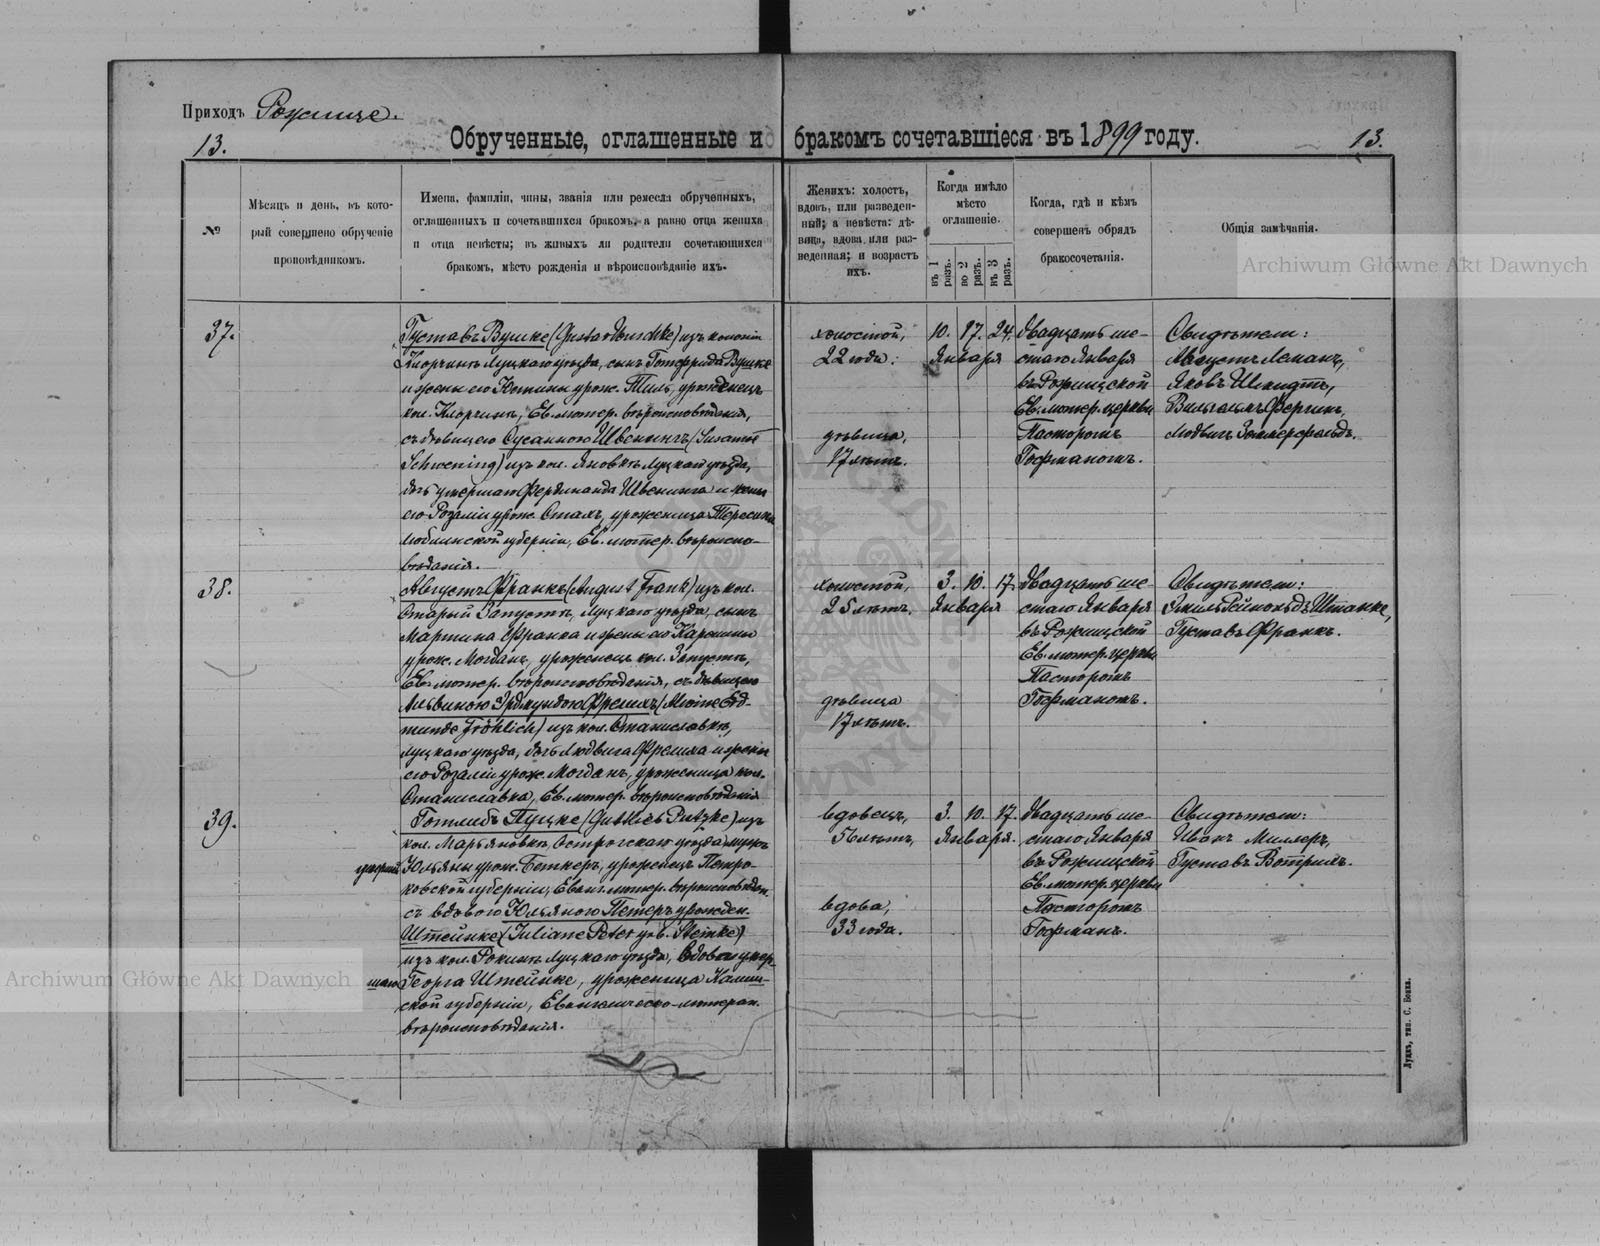 Приходъ Рожище.
13.
Обрученные, оглашенные и бракомъ сочетавшіеся въ 1899 году.
13.
№
Мѣсяцъ и день, въ кото-
рый совершено обрученіе
проповѣдникомъ.
Имена, фамиліи, чины, званія или ремесла обрученныхъ,
оглашенныхъ и сочетавшихся бракомъ, а равно отца жениха
и отца невѣсты; въ живыхъ ли родители сочетающихся
бракомъ, мѣсто рожденія и вѣроисповѣданіе ихъ.
Женихъ: холостъ,
вдовъ, или разведен-
ный; а невѣста: дѣ-
вица, вдова или раз-
веденная; и возрастъ
ихъ.
Когда имѣло
мѣсто
оглашеніе.
въ 1 разъ.
во 2 разъ.
въ 3 разъ.
Когда, гдѣ и кѣмъ
совершенъ обрядъ
бракосочетанія.
Общія замѣчанія.
Archiwum Główne Akt Dawnych
37.
Густавъ Вушке (Gustav Wuschke) изъ колоніи
Луцкаго уѣзда, сынъ Готфрида Вушке
и жены его Юстины урож. Тиль, уроженецъ
кол. Ев. лютер. вѣроисповѣданія,
съ дѣвицею Сусанною Швенингъ (Susanne
Schwening) изъ кол. Яновка Луцкаго уѣзда,
дочь умершаго Фердинанда Швенинга и жены
его Розаліи урож. Стахъ, уроженица
Люблинской губерніи, Ев. лютер. вѣроиспо-
вѣданія.
холостой,
22 года:
дѣвица,
17 лѣтъ.
10. 17. 24.
Января
Двадцать ше-
стаго Января
въ Рожищской
Ев. лютер. церкви
Пасторомъ
Гофманомъ.
Свидѣтели:
Августъ Леманъ,
Яковъ Шмидтъ,
Вильгельмъ Фергинъ,
Людвигъ Зоммерфельдъ.
38.
Августъ Франкъ (August Frank) изъ кол.
Старый Запустъ, Луцкаго уѣзда, сынъ
Мартина Франка и жены его Каролины
урож. Могданъ, уроженецъ кол. Запустъ,
Ев. лютер. вѣроисповѣданія, съ дѣвицею
Альвиною Эрдмундою Фрелихъ (Alwine Erd-
munde Fröhlich) изъ кол. Станиславка,
Луцкаго уѣзда, дочь Людвига Фрелиха и жены
его Розаліи урож. Могданъ, уроженица кол.
Станиславка, Ев. лютер. вѣроисповѣданія
холостой,
25 лѣтъ.
дѣвица
17 лѣтъ.
3. 10. 17.
Января
Двадцать ше-
стаго Января
въ Рожищской
Ев. лютер. церкви
Пасторомъ
Гофманомъ.
Свидѣтели:
Эмиль Реймондъ Штанке,
Густавъ Франкъ.
39.
Готлибъ Пуцке (Gottlieb Putzke) изъ
кол. Марьяновка, Острогскаго уѣзда мужъ
умершей Юльяны урож. Беткеръ, уроженецъ Петро-
ковской губерніи, Еванг. лютер. вѣроисповѣдан.
съ вдовою Юльяною Петеръ урожден.
Штейнке (Juliane Peter geb. Steinke)
изъ кол. Рокинь Луцкаго уѣзда, вдовою умер-
шаго Георга Штейнке, уроженица Калиш-
ской губерніи, Евангелическо-лютеран.
вѣроисповѣданія.
вдовецъ,
56 лѣтъ,
вдова,
33 года.
3. 10. 17.
Января.
Двадцать ше-
стаго Января
въ Рожищской
Ев. лютер. церкви
Пасторомъ
Гофманъ.
Свидѣтели:
Иванъ Миллеръ,
Густавъ Ботрихъ.
Archiwum Główne Akt Dawnych
Луцкъ, тип. С. Бокка.